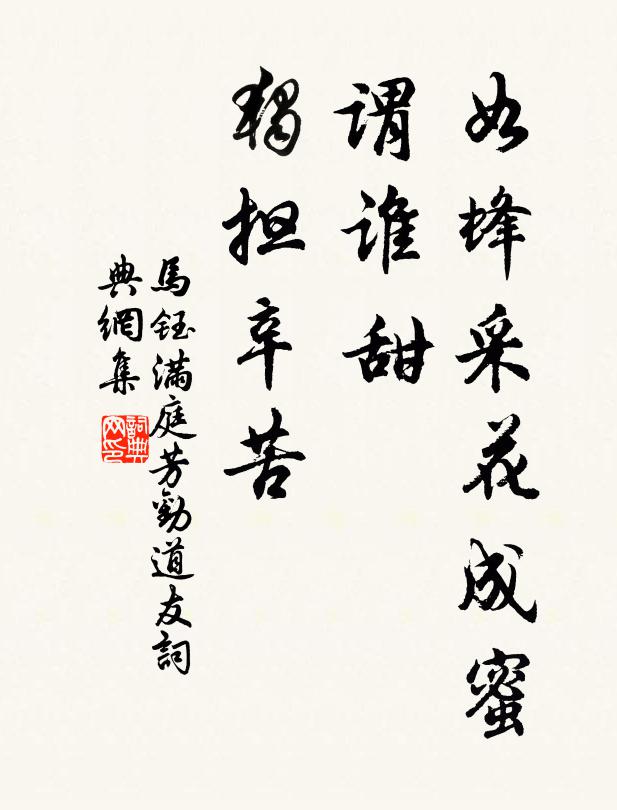 如蜂采花成蜜
谓谁甜
獨担辛苦
馬鈺滿庭芳勸道友詞
典網集
詞典网印